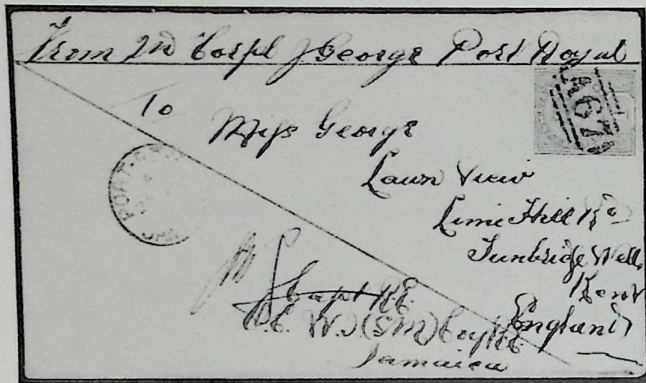 From 2nd Corpl J George Port Royal
A67
To
Miss George
Lawn View
Lime Hill Rd
Tunbridge Wells
Kent
England
PORT
Capt R.E.
O.C. W.I. (S.M.) Coy R.E.
Jamaica